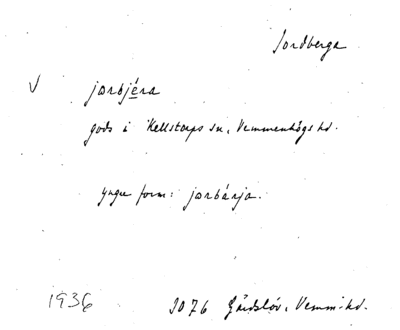 Jordberga
√ jorbjéra
gods i Källstorps sn, Vemmenhögs hd.
yngre form: jorbárja.
1936 3076 Gärdslöv, Vemm. hd.